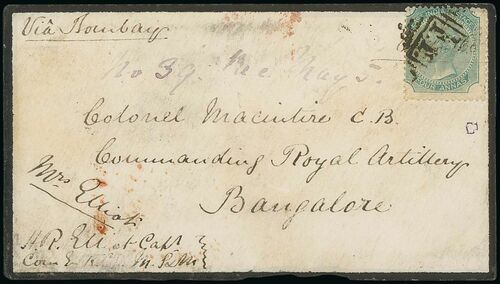 Via Bombay
No 39. Rec May 5.
FOUR ANNAS
Colonel Macintire C.B.
Commanding Royal Artillery
Bangalore
Mrs Elliot
H.R. Elliot Capt